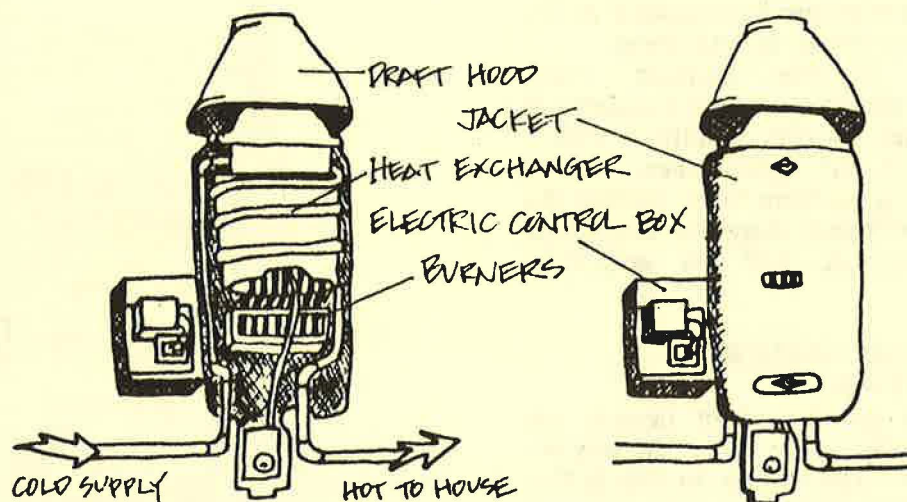 DRAFT HOOD
JACKET
HEAT EXCHANGER
ELECTRIC CONTROL BOX
BURNERS
COLD SUPPLY
HOT TO HOUSE